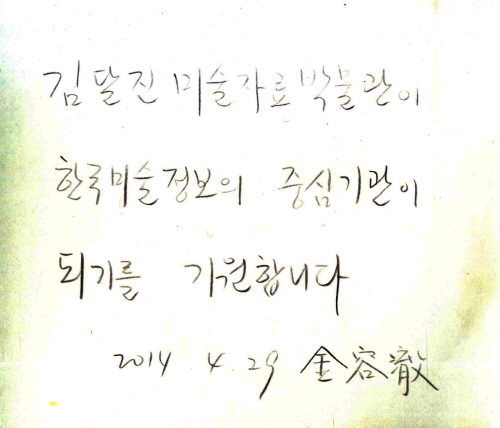 김달진미술자료박물관이
한국미술정보의 중심기관이
되기를 기원합니다
2014 4. 29 金容徹